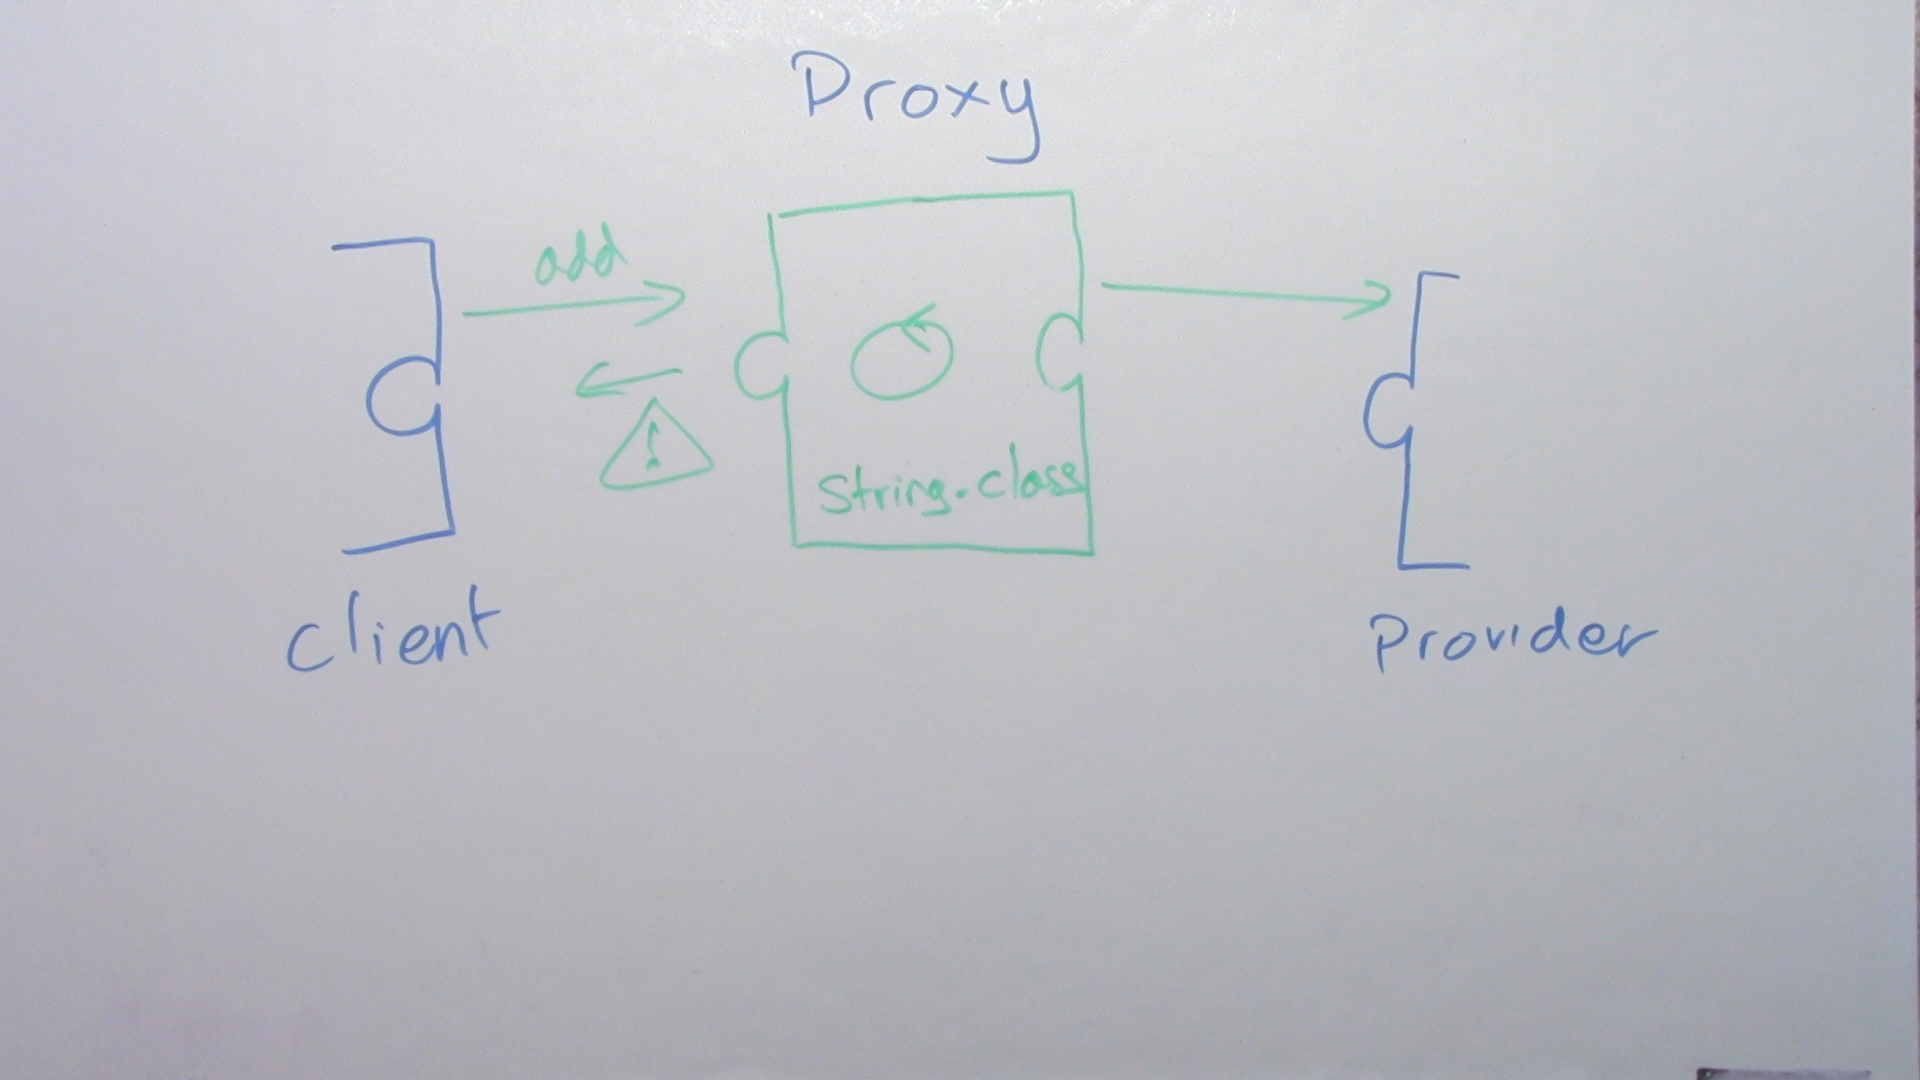 Proxy
add
!
String.class
client
Provider